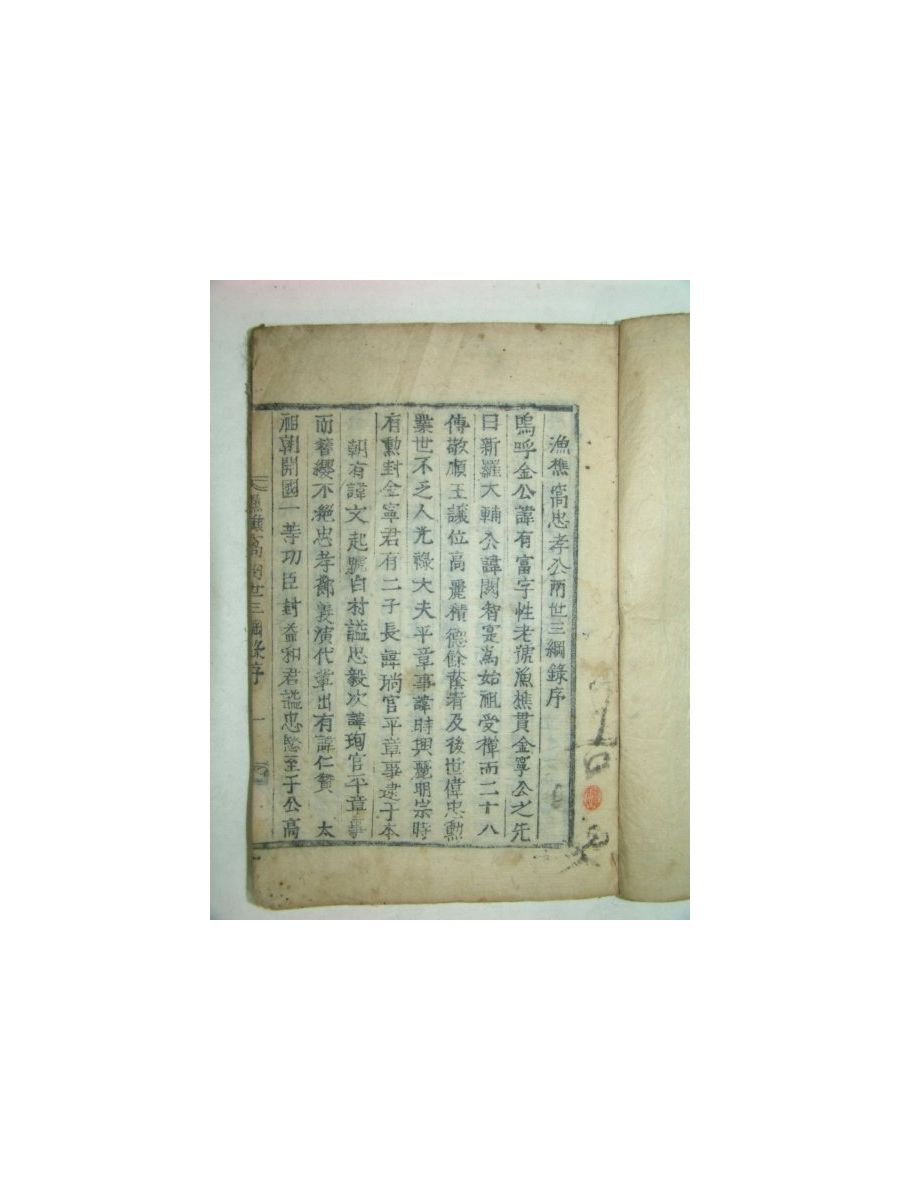 漁樵窩忠孝公兩世三綱錄序
嗚呼金公諱有富字性老號漁樵貫金寧公之先
曰新羅大輔公諱閼智寔爲始祖受禪而二十八
傳敬順王讓位高麗積德餘蔭者及後世偉忠勳
業世不乏人光祿大夫平章事諱時興麗明宗時
有勳封金寧君有二子長諱琑官平章事逮于本
朝有諱文起號白村謚忠毅次諱珣官平章事
而簪纓不絶忠孝節義演代輩出有諱仁賛 太
祖朝開國一等功臣封益和君謚忠愍至于公高
漁樵窩兩世三綱錄序 一